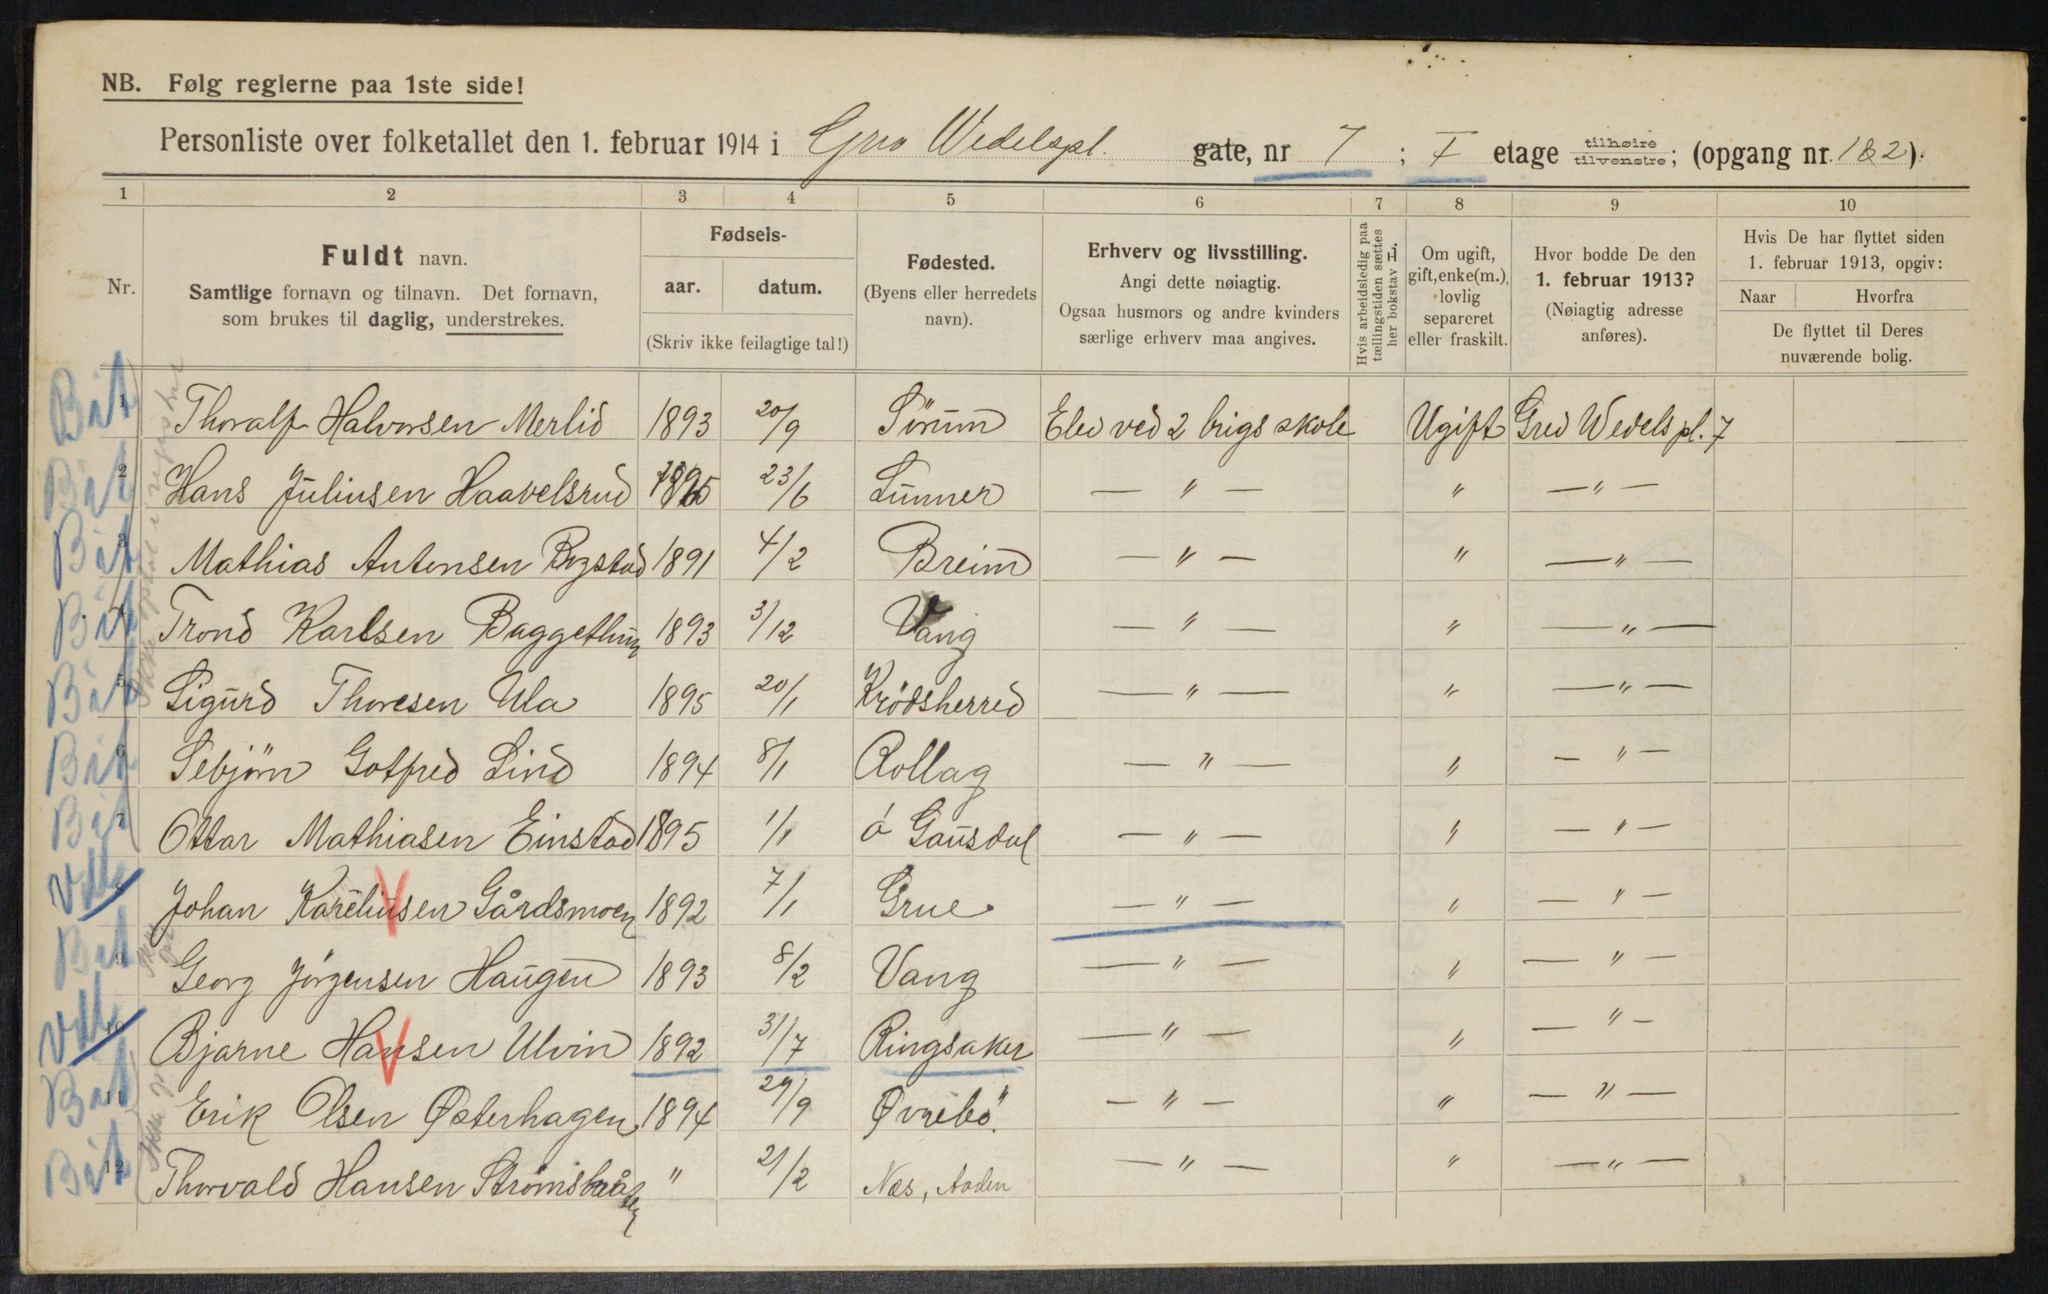 NB. Følg reglerne paa 1ste side!
Personliste over folketallet den 1. februar 1914 i Grev Wedelspl. gate, nr 7 ; I etage tilhøire tilvenstre; (opgang nr. 1&2).
1 2 3 4 5 6 7 8 9 10
Nr.
Fuldt navn.
Samtlige fornavn og tilnavn. Det fornavn,
som brukes til daglig, understrekes.
Fødsels-
aar. datum.
(Skriv ikke feilagtige tal!)
Fødested.
(Byens eller herredets
navn).
Erhverv og livsstilling.
Angi dette nøiagtig.
Ogsaa husmors og andre kvinders
særlige erhverv maa angives.
Hvis arbeidsledig paa
tællingstiden sættes
her bokstav L.
Om ugift,
gift, enke(m.),
lovlig
separeret
eller fraskilt.
Hvor bodde De den
1. februar 1913?
(Nøiagtig adresse
anføres).
Hvis De har flyttet siden
1. februar 1913, opgiv:
Naar Hvorfra
De flyttet til Deres
nuværende bolig.
1 Thoralf Halvorsen Merlid 1893 20/9 Sörum Elev ved 2 brigs skole Ugift Grev Wedels pl. 7
2 Hans Juliusen Haavelsrud 1895 23/6 Lunner — " — " — " —
3 Mathias Antonsen Rygstad 1891 4/2 Breim — " — " — " —
4 Trond Karlsen Baggethun 1893 3/12 Vang — " — " — " —
5 Sigurd Thoresen Ula 1895 20/1 Krödsherred — " — " — " —
6 Sebjörn Gotfred Lind 1894 8/1 Rollag — " — " — " —
7 Ottar Mathiasen Einstad 1895 1/1 ö Gausdal — " — " — " —
Johan Kareliusen Gårdsmoen 1892 7/1 Grue — " — " — " —
9 Georg Jörgensen Haugen 1893 8/2 Vang — " — " — " —
10 Bjarne Hansen Ulvin 1892 31/7 Ringsaker — " — " — " —
11 Erik Olsen Østerhagen 1894 29/9 Øvrebö — " — " — " —
12 Thorvald Hansen " 21/2 Næs, — " — " — " —